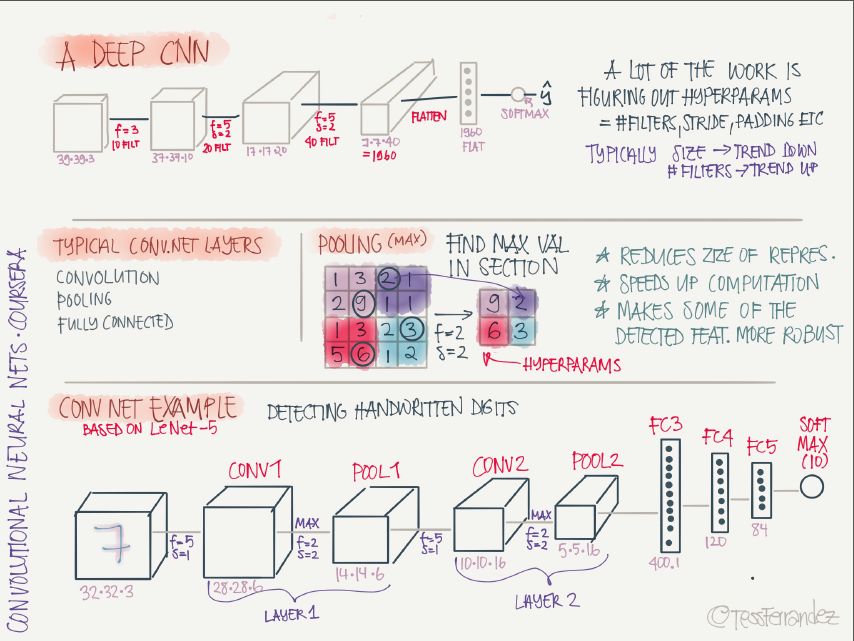 A DEEP CNN
39·39·3
f=3
10 FILT
37·37·10
f=5
s=2
20 FILT
17·17·20
f=5
s=2
40 FILT
7·7·40
=1960
FLATTEN
1960
FLAT
SOFTMAX
ŷ
A LOT OF THE WORK IS
FIGURING OUT HYPERPARAMS
= #FILTERS, STRIDE, PADDING ETC
TYPICALLY SIZE → TREND DOWN
# FILTERS → TREND UP
TYPICAL CONV.NET LAYERS
CONVOLUTION
POOLING
FULLY CONNECTED
POOLING (MAX)
FIND MAX VAL
IN SECTION
1 3 2 1
2 9 1 1
1 3 2 3
5 6 1 2
f=2
s=2
9 2
6 3
HYPERPARAMS
* REDUCES ZIZE OF REPRES.
* SPEEDS UP COMPUTATION
* MAKES SOME OF THE
DETECTED FEAT. MORE ROBUST
CONV NET EXAMPLE
BASED ON LeNet-5
DETECTING HANDWRITTEN DIGITS
7
32·32·3
f=5
s=1
CONV1
28·28·6
MAX
f=2
s=2
POOL1
14·14·6
LAYER 1
f=5
s=1
CONV2
10·10·16
MAX
f=2
s=2
POOL2
5·5·16
LAYER 2
FC3
400.1
FC4
120
FC5
84
SOFT
MAX
(10)
CONVOLUTIONAL NEURAL NETS · COURSERA
©TessFerrandez